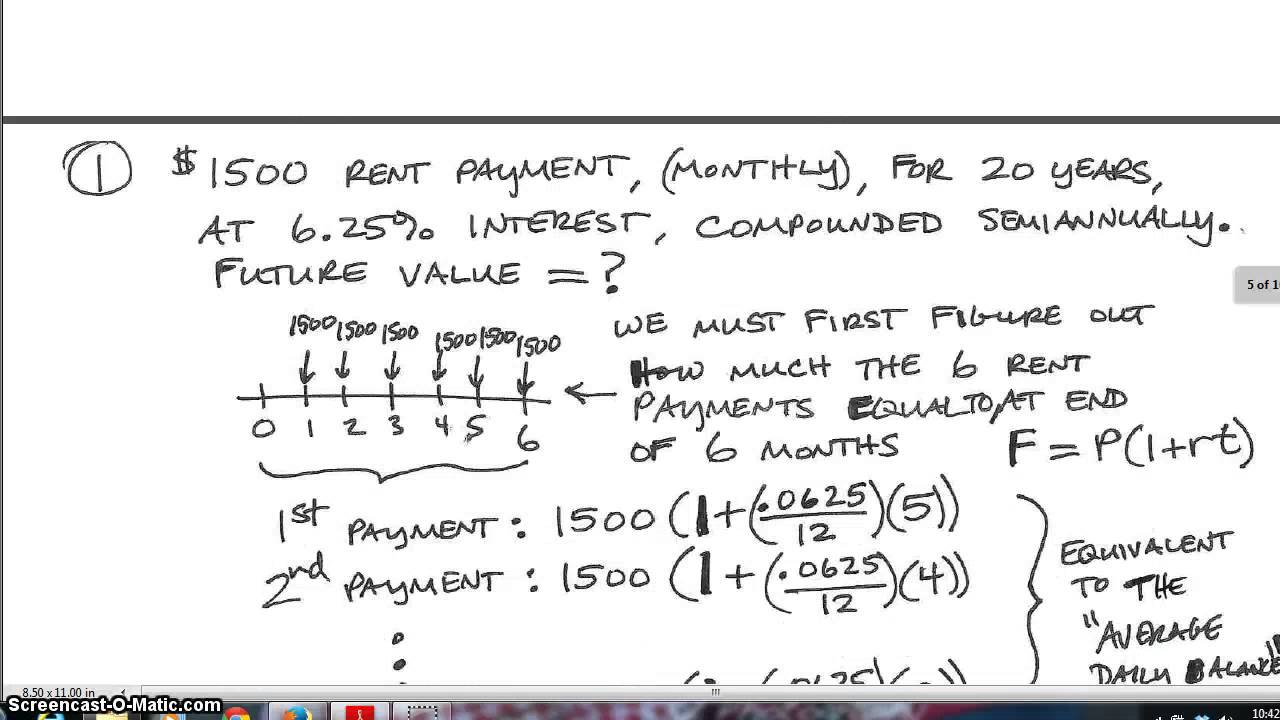 ① $1500 RENT PAYMENT, (MONTHLY), FOR 20 YEARS,
AT 6.25% INTEREST, COMPOUNDED SEMIANNUALLY.
FUTURE VALUE = ?
5 of 1
1500 1500 1500 1500 1500 1500
0 1 2 3 4 5 6
WE MUST FIRST FIGURE OUT
HOW MUCH THE 6 RENT
PAYMENTS EQUAL TO, AT END
OF 6 MONTHS
F = P(1+rt)
1st PAYMENT : 1500 (1+(.0625/12)(5))
2nd PAYMENT : 1500 (1+(.0625/12)(4))
EQUIVALENT
TO THE
"AVERAGE
DAILY BALANCE"
8.50 x 11.00 in
Screencast-O-Matic.com
10:42